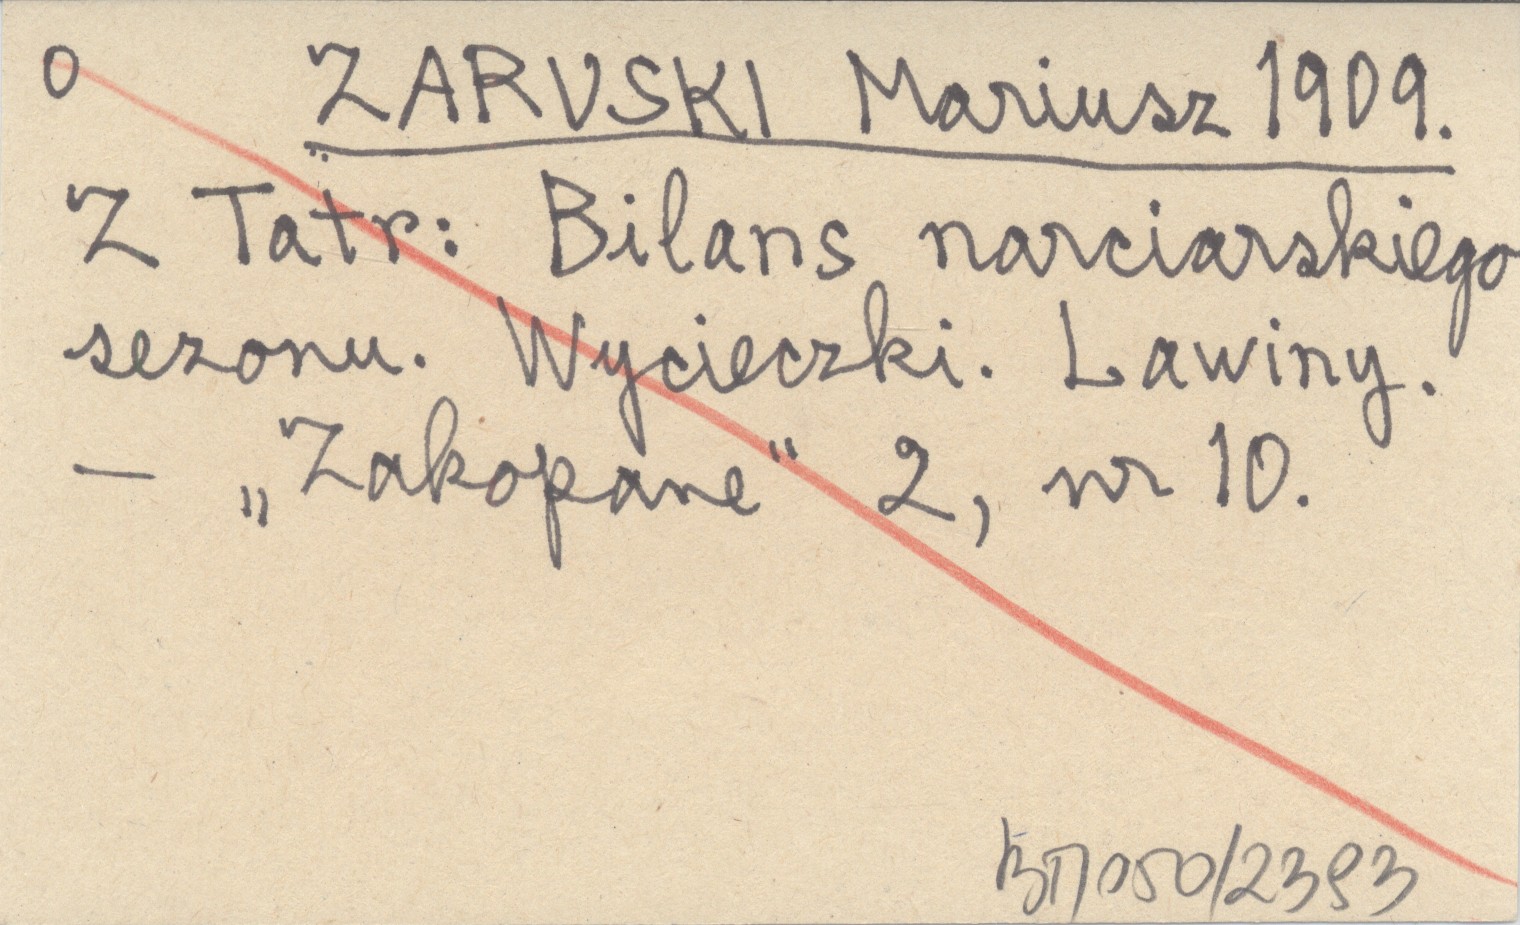 O ZARUSKI Mariusz 1909.
Z Tatr: Bilans narciarskiego
sezonu. Wycieczki. Lawiny.
— „Zakopane“ 2, nr 10.